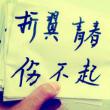 折翼青春
伤不起